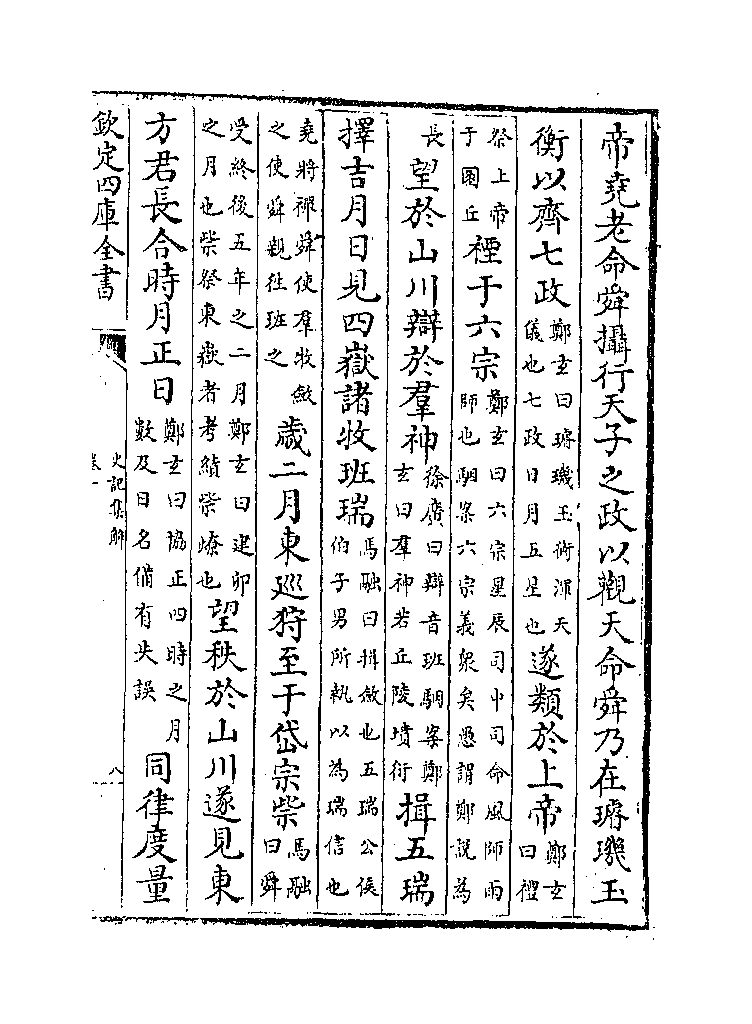 帝堯老命舜攝行天子之政以觀天命舜乃在璿璣玉
衡以齊七政鄭玄曰璿璣玉衡渾天儀也七政日月五星也遂類於上帝鄭玄曰禮
祭上帝于圜丘禋于六宗鄭玄曰六宗星辰司中司命風師雨師也駰案六宗義衆矣愚謂鄭說為
長望於山川辯於羣神徐廣曰辯音班駰案鄭玄曰羣神若丘陵墳衍揖五瑞
擇吉月日見四嶽諸牧班瑞馬融曰揖斂也五瑞公侯伯子男所執以為瑞信也
堯將禪舜使羣牧斂之使舜親往班之歲二月東巡狩至于岱宗柴馬融曰舜
受終後五年之二月鄭玄曰建卯之月也柴祭東嶽者考績柴燎也望秩於山川遂見東
方君長合時月正日鄭玄曰協正四時之月數及日名備有失誤同律度量
欽定四庫全書
史記集解
卷一
八